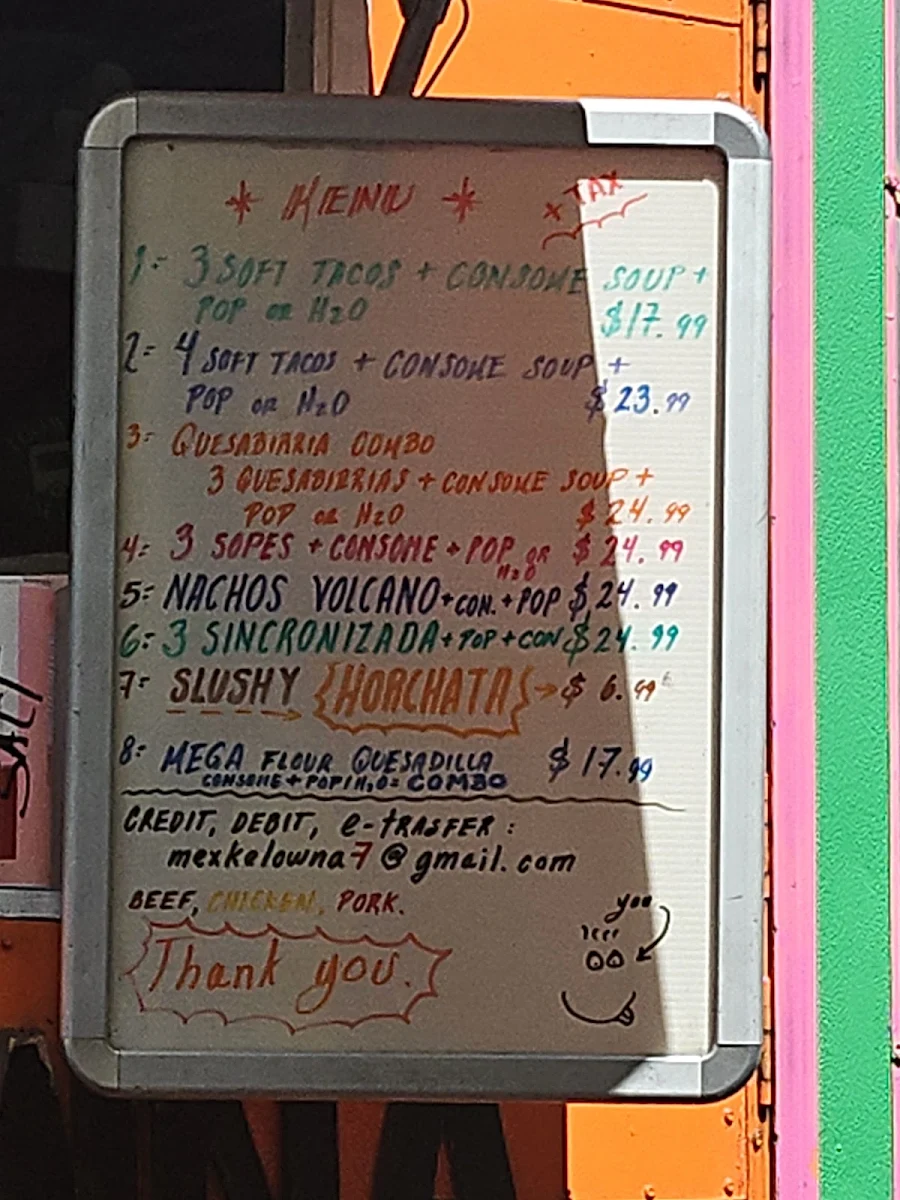 * MENU * + TAX
1- 3 SOFT TACOS + CONSOME SOUP +
POP or H2O $17.99
2- 4 SOFT TACOS + CONSOME SOUP +
POP or H2O $23.99
3- QUESABIRRIA COMBO
3 QUESABIRRIAS + CONSOME SOUP +
POP or H2O $24.99
4- 3 SOPES + CONSOME + POP or H2O $24.99
5- NACHOS VOLCANO + CON. + POP $24.99
6- 3 SINCRONIZADA + POP + CON $24.99
7- SLUSHY {HORCHATA} → $6.99
8- MEGA FLOUR QUESADILLA $17.99
CONSOME + POP / H2O = COMBO
CREDIT, DEBIT, e-TRASFER :
mexkelowna7@gmail.com
BEEF, CHICKEN, PORK.
you
Thank you.